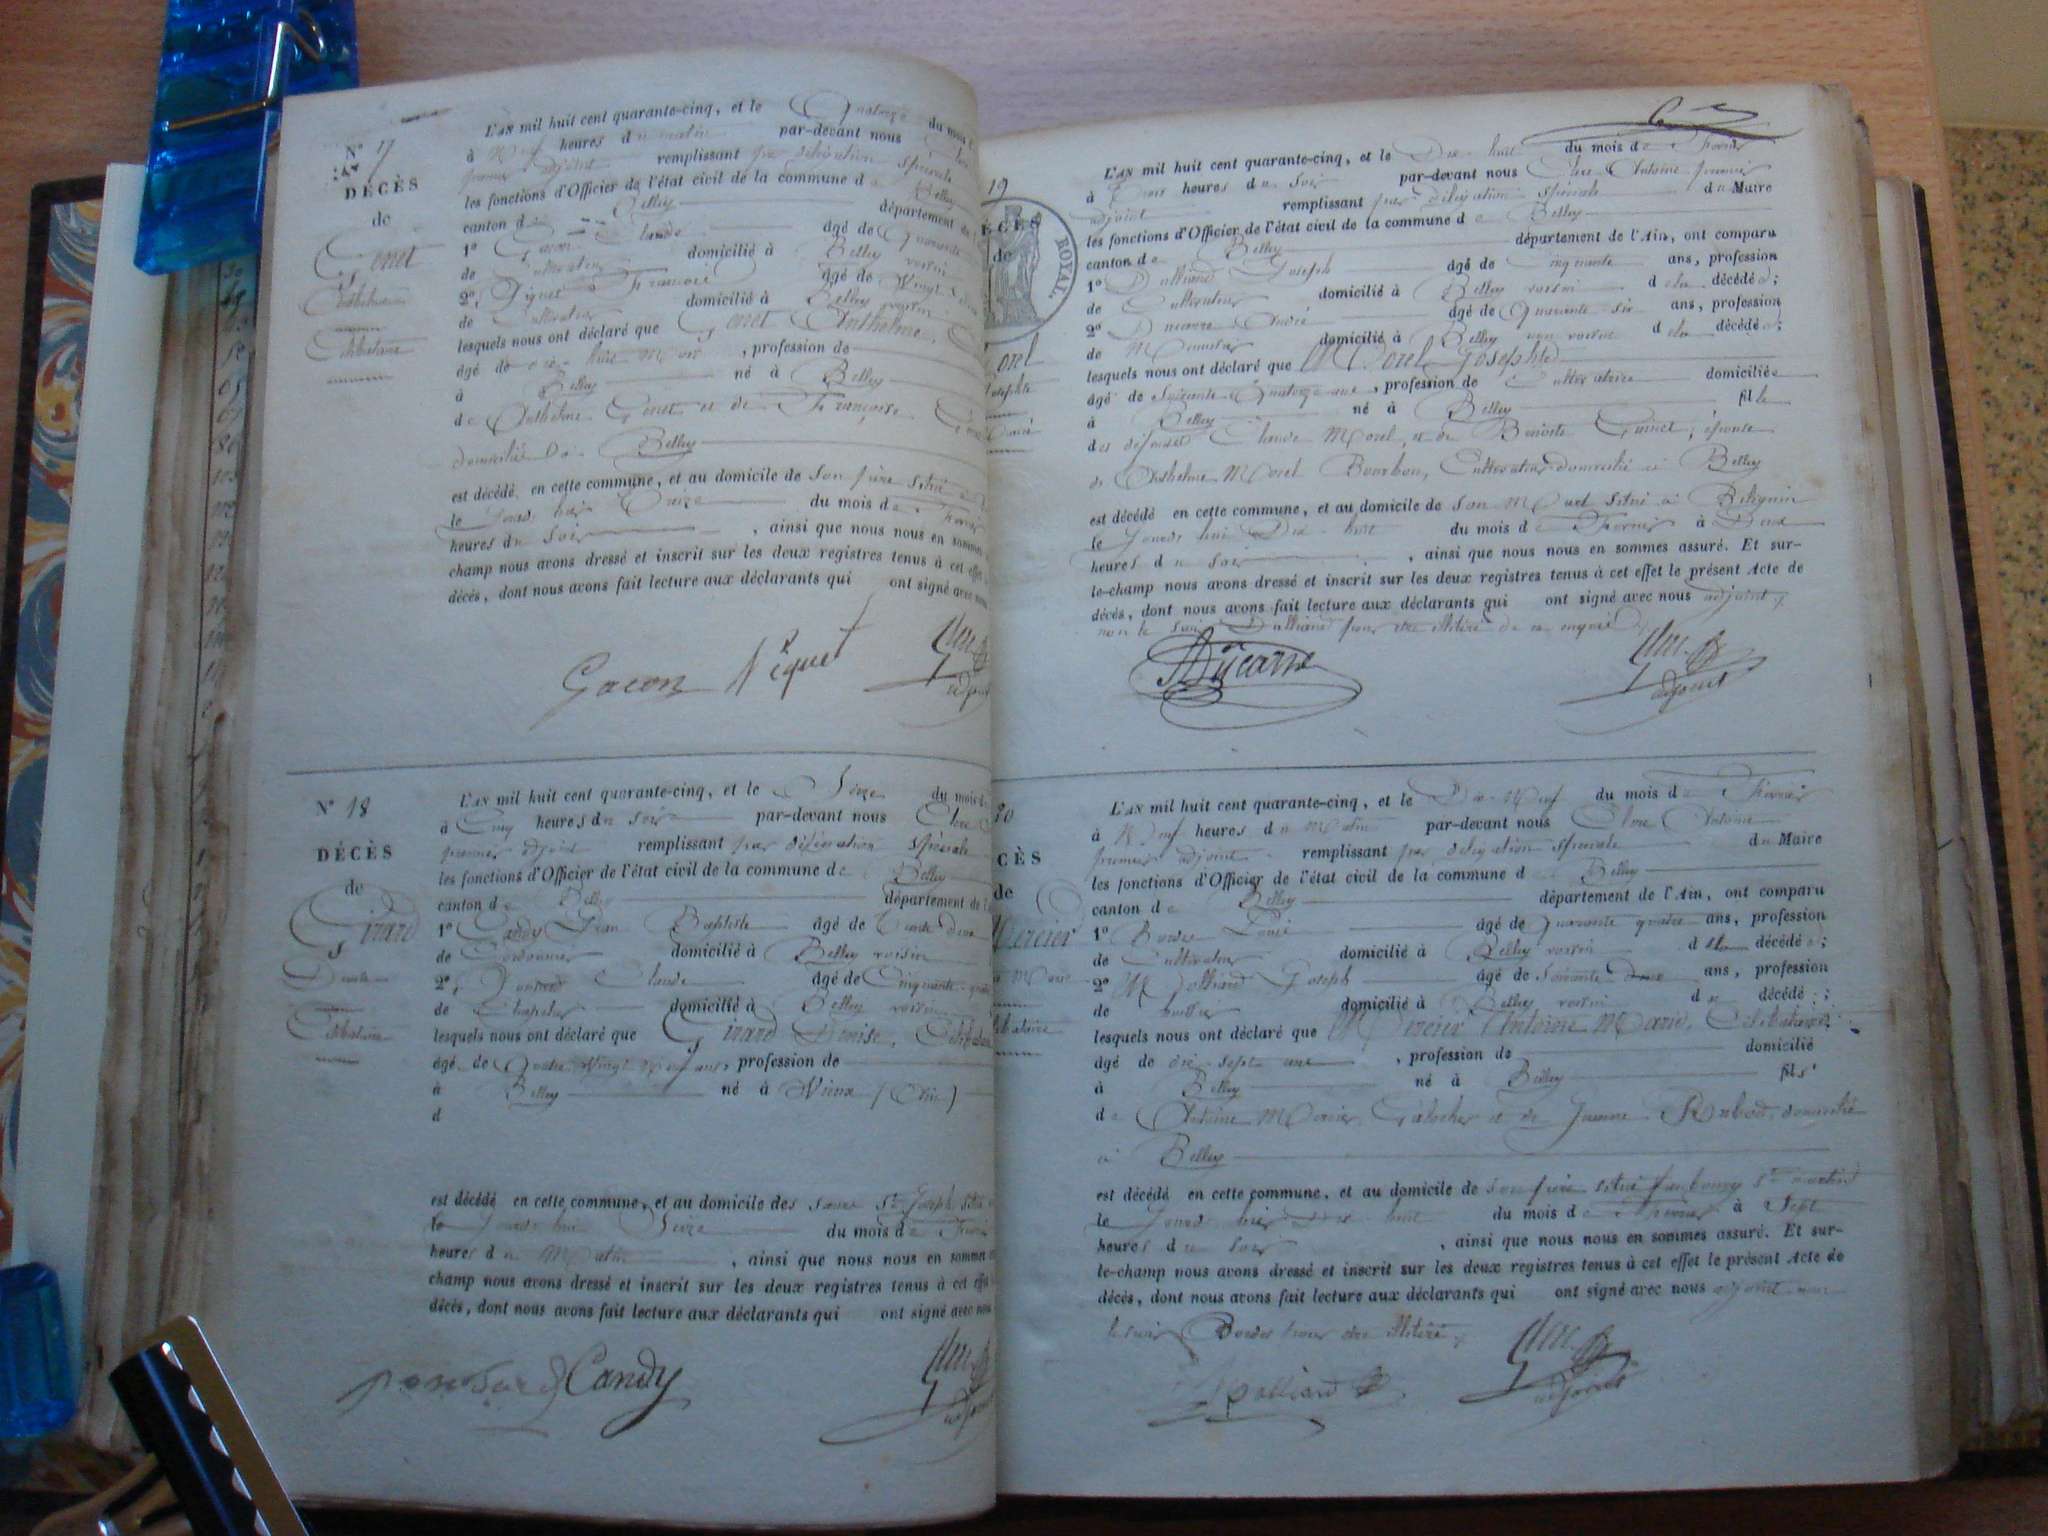 Nº 17
DÉCÈS
de
Gonet
Anthelme
Célibataire
L'AN mil huit cent quarante-cinq, et le Quatorze du mois
à Neuf heures du matin par-devant nous
premier adjoint remplissant par délégation spéciale
les fonctions d'Officier de l'état civil de la commune de Belley
canton de Belley département de
1º Gacon Claude âgé de Quarante
de Cultivateur domicilié à Belley voisin
2º Piquet François âgé de Vingt
de Cultivateur domicilié à Belley voisin
lesquels nous ont déclaré que Gonet Anthelme
âgé de dix-huit mois, profession de
à Belley né à Belley
de Anthelme Gonet et de Françoise
domiciliés à Belley
est décédé en cette commune, et au domicile de son père situé à
le jourd'hier Treize du mois de Février
heures du soir, ainsi que nous nous en sommes
champ nous avons dressé et inscrit sur les deux registres tenus à cet effet
décès, dont nous avons fait lecture aux déclarants qui ont signé avec nous
Gacon Piquet Clerc
adjoint
Nº 18
DÉCÈS
de
Girard
Denise
Célibataire
L'AN mil huit cent quarante-cinq, et le Seize du mois
à Cinq heures du soir par-devant nous Clerc
premier adjoint remplissant par délégation spéciale
les fonctions d'Officier de l'état civil de la commune de Belley
canton de Belley département de l'
1º Candy Jean Baptiste âgé de Trente deux
de Cordonnier domicilié à Belley voisin
2º Claude âgé de Cinquante quatre
de Chapelier domicilié à Belley voisin
lesquels nous ont déclaré que Girard Denise, Célibataire
âgé de Quatre Vingt Neuf ans, profession de
à Belley né à Virieux (Ain)
d
est décédé en cette commune, et au domicile des soeurs St Joseph situé
le jourd'hui Seize du mois de Février
heures du Matin, ainsi que nous nous en sommes
champ nous avons dressé et inscrit sur les deux registres tenus à cet effet
décès, dont nous avons fait lecture aux déclarants qui ont signé avec nous
Candy Clerc
adjoint
19
ÉCÈS
de
orel
Josephte
ROYAL.
L'AN mil huit cent quarante-cinq, et le Dix-huit du mois de Février
à Trois heures du Soir par-devant nous Clerc Antoine premier
adjoint remplissant par délégation spéciale du Maire
les fonctions d'Officier de l'état civil de la commune de Belley
canton de Belley département de l'Ain, ont comparu
1º Dulliand Joseph âgé de Cinquante ans, profession
de Cultivateur domicilié à Belley voisin de la décédée;
2º Ducarre André âgé de Quarante six ans, profession
de Menuisier domicilié à Belley non voisin de la décédée;
lesquels nous ont déclaré que Morel Josephte
âgé de Soixante Quatorze ans, profession de Cultivatrice domiciliée
à Belley né à Belley fille
des défunts Claude Morel et de Benoite Guinet; épouse
de Anthelme Morel Bourbon, Cultivateur domicilié à Belley
est décédé en cette commune, et au domicile de son Mari situé à Bélignin
le jourd'hui Dix-huit du mois de Février à Deux
heures du soir, ainsi que nous nous en sommes assuré. Et sur-
le-champ nous avons dressé et inscrit sur les deux registres tenus à cet effet le présent Acte de
décès, dont nous avons fait lecture aux déclarants qui ont signé avec nous adjoint,
non le sieur Dulliand pour être illitéré de ce enquis
Ducarre Clerc
adjoint
20
CÈS
de
Mercier
L'AN mil huit cent quarante-cinq, et le Dix-Neuf du mois de Février
à Neuf heures du Matin par-devant nous Clerc Antoine
premier adjoint remplissant par délégation spéciale du Maire
les fonctions d'Officier de l'état civil de la commune de Belley
canton de Belley département de l'Ain, ont comparu
1º Bordes Louis âgé de Quarante quatre ans, profession
de Cultivateur domicilié à Belley voisin d décédé;
2º Molliard Joseph âgé de Soixante Deux ans, profession
de domicilié à Belley voisin du décédé;
lesquels nous ont déclaré que Mercier Antoine Marie, Célibataire
âgé de dix-sept ans, profession de domicilié
à Belley né à Belley fils
de Antoine Mercier, Galocher et de Jeanne Rubod, domiciliés
à Belley
est décédé en cette commune, et au domicile de son père situé faubourg St martin
le jourd'hier Dix huit du mois de Février à Sept
heures du soir, ainsi que nous nous en sommes assuré. Et sur-
le-champ nous avons dressé et inscrit sur les deux registres tenus à cet effet le présent Acte de
décès, dont nous avons fait lecture aux déclarants qui ont signé avec nous adjoint non
le sieur Bordes pour être illitéré
Molliard Clerc
adjoint